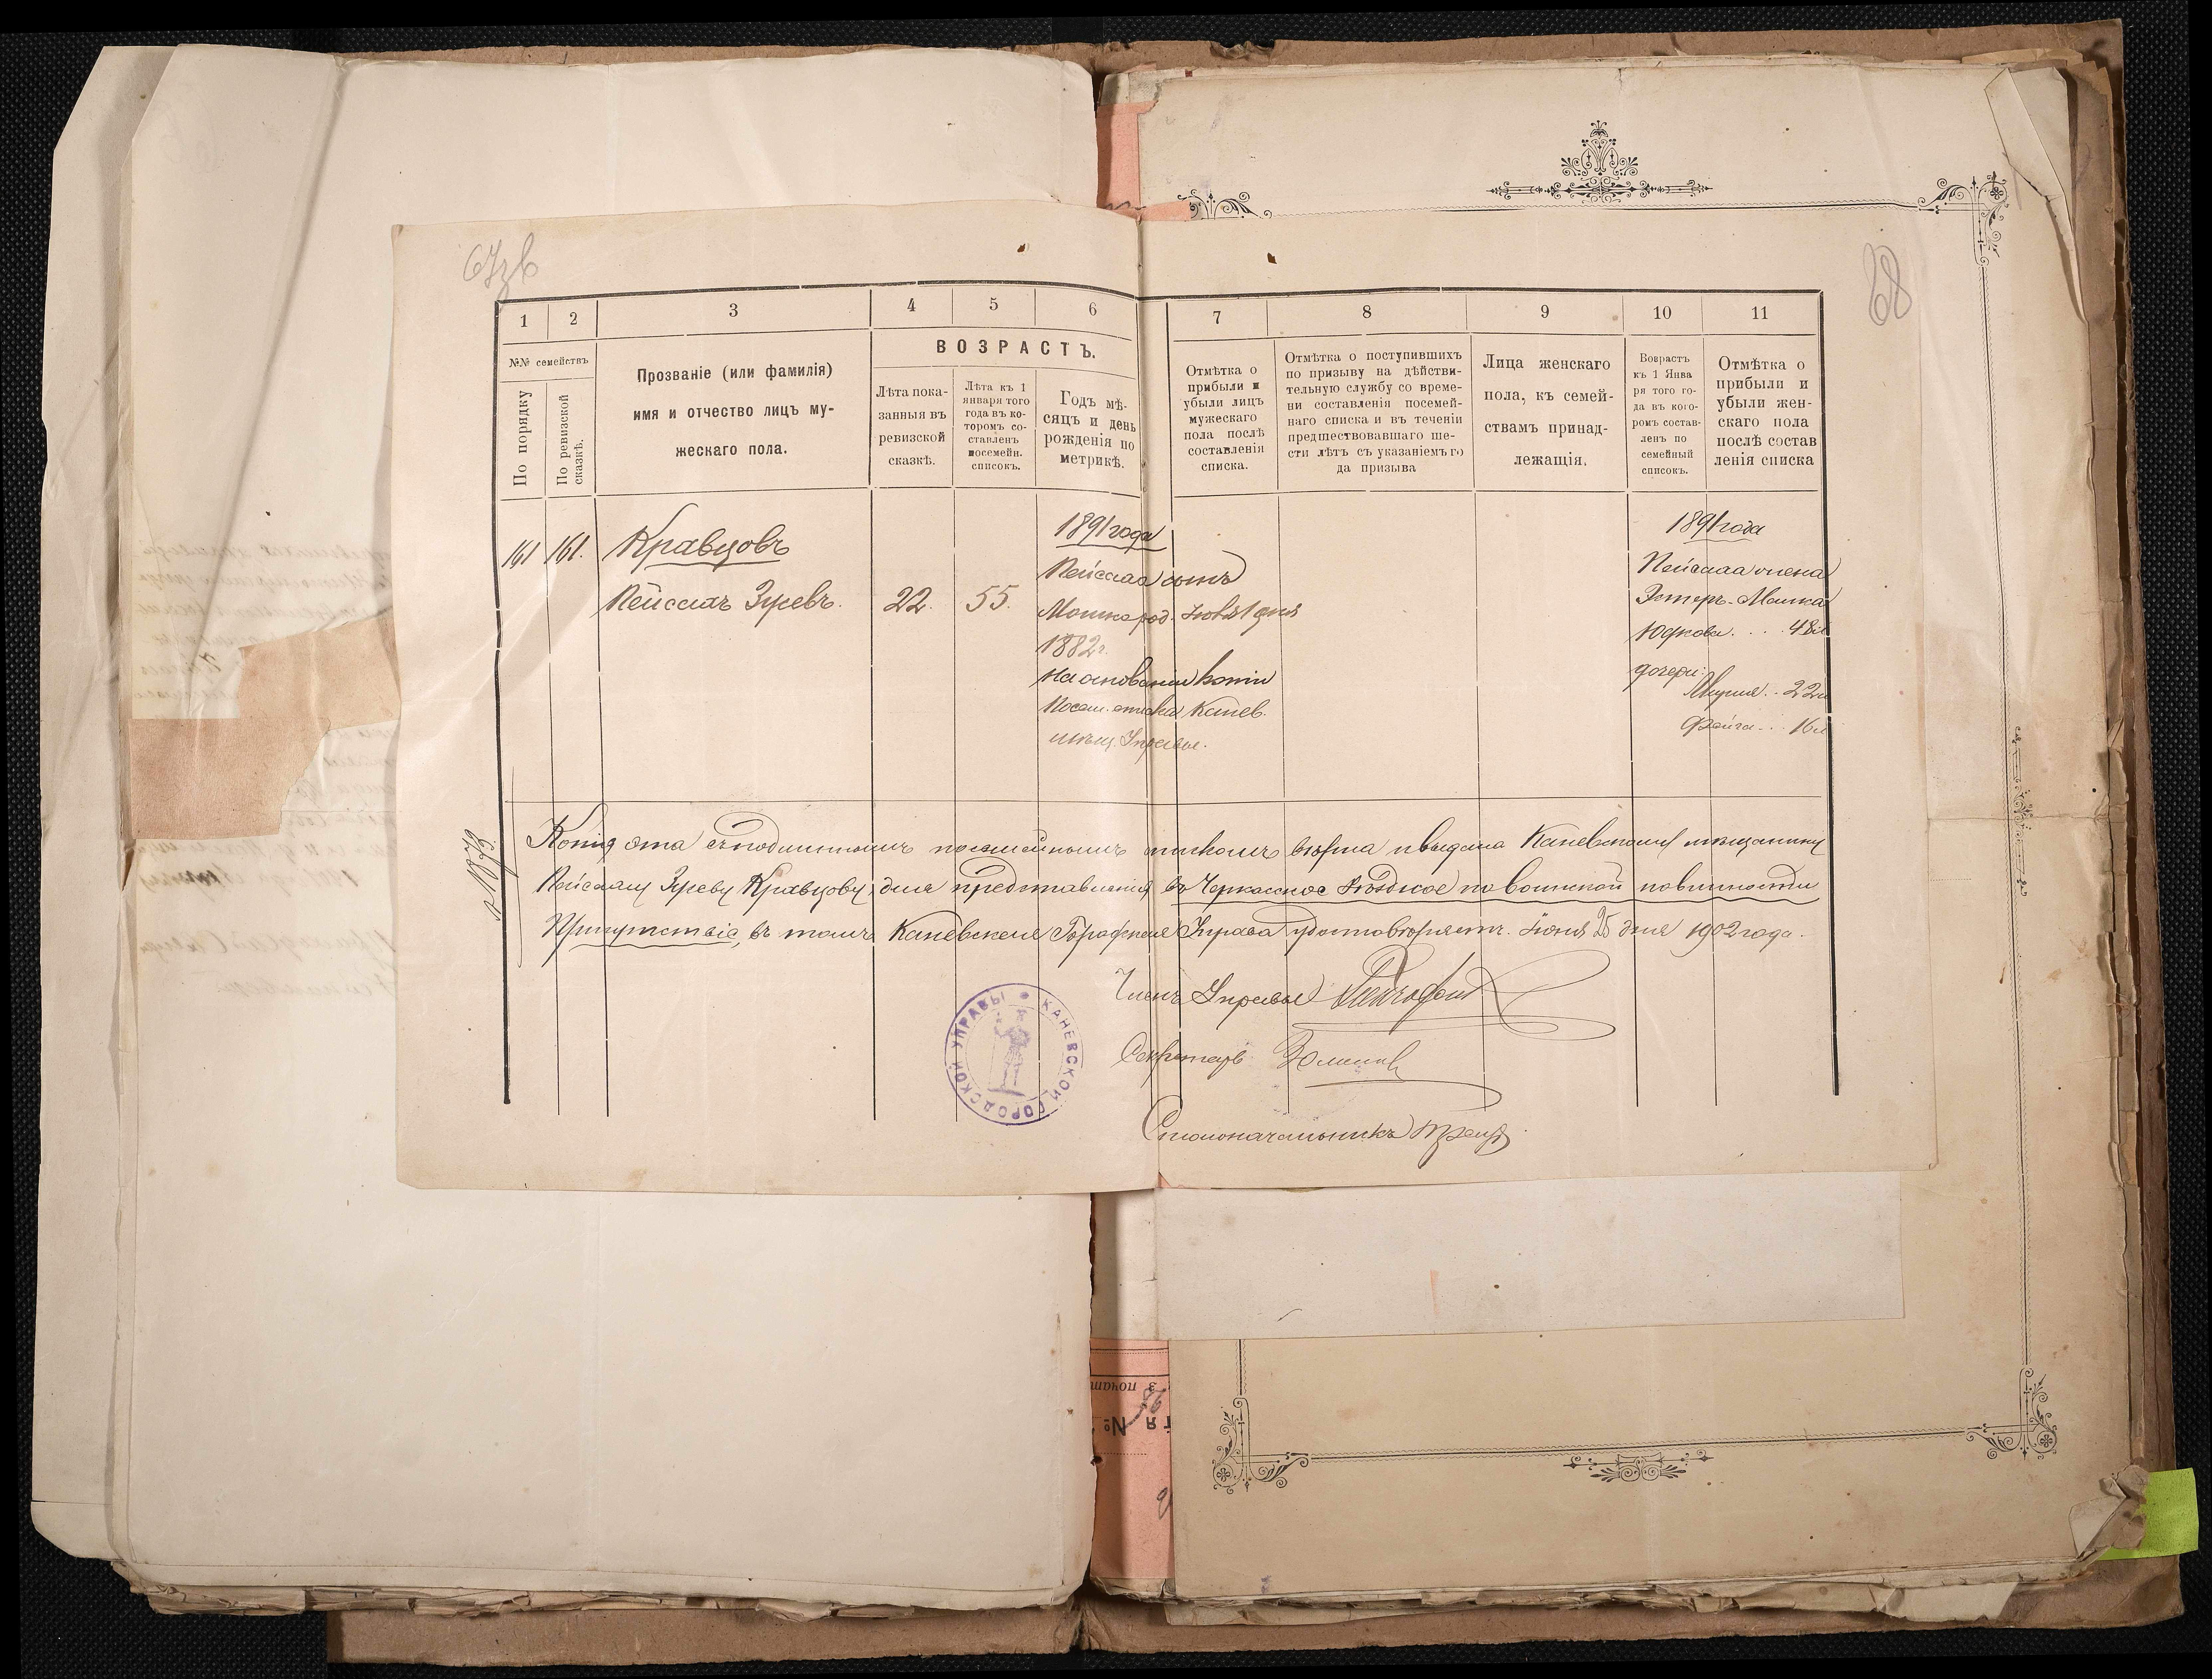 67зв
68
1 2 3 4 5 6 7 8 9 10 11
№№ семействъ
По порядку
По ревизской сказкѣ.
Прозваніе (или фамилія)
имя и отчество лицъ му-
жескаго пола.
ВОЗРАСТЪ.
Лѣта пока-
занныя въ
ревизской
сказкѣ.
Лѣта къ 1
января того
года въ ко-
торомъ со-
ставленъ
посемейн.
списокъ.
Годъ мѣ-
сяцъ и день
рожденія по
метрикѣ.
Отмѣтка о
прибыли и
убыли лицъ
мужескаго
пола послѣ
составленія
списка.
Отмѣтка о поступившихъ
по призыву на дѣйстви-
тельную службу со време-
ни составленія посемей-
наго списка и въ теченіи
предшествовавшаго ше-
сти лѣтъ съ указаніемъ го
да призыва
Лица женскаго
пола, къ семей-
ствамъ принад-
лежащія.
Возрастъ
къ 1 Янва
ря того го-
да въ кото-
ромъ состав-
ленъ по
семейный
списокъ.
Отмѣтка о
прибыли и
убыли жен-
скаго пола
послѣ состав
ленія списка
161 161. Кравцовъ
Пейсахъ Зуевъ. 22. 55.
1891 года
Пейсаха сынъ
Мошко род. Іюля 1 дня
1882 г.
На основаніи копіи
Посем. списка Канев.
мѣщ. Управы.
1891 года
Пейсаха жена
Эстеръ-Малка
Юдкова . . . 48 л
дочери:
22 л
Фейга . . . 16 л
Копія эта съ подлиннымъ посемейнымъ спискомъ вѣрна и выдана Каневскому мѣщанину
Пейсаху Зуеву Кравцову, для представленія въ Черкасское Уѣздное по воинской повинности
Присутствіе, въ томъ Каневская Городская Управа удостовѣряетъ. Іюня 25 дня 1902 года.
Членъ Управы
Секретарь
Столоначальникъ
КАНЕВСКОЙ ГОРОДСКОЙ УПРАВЫ
№